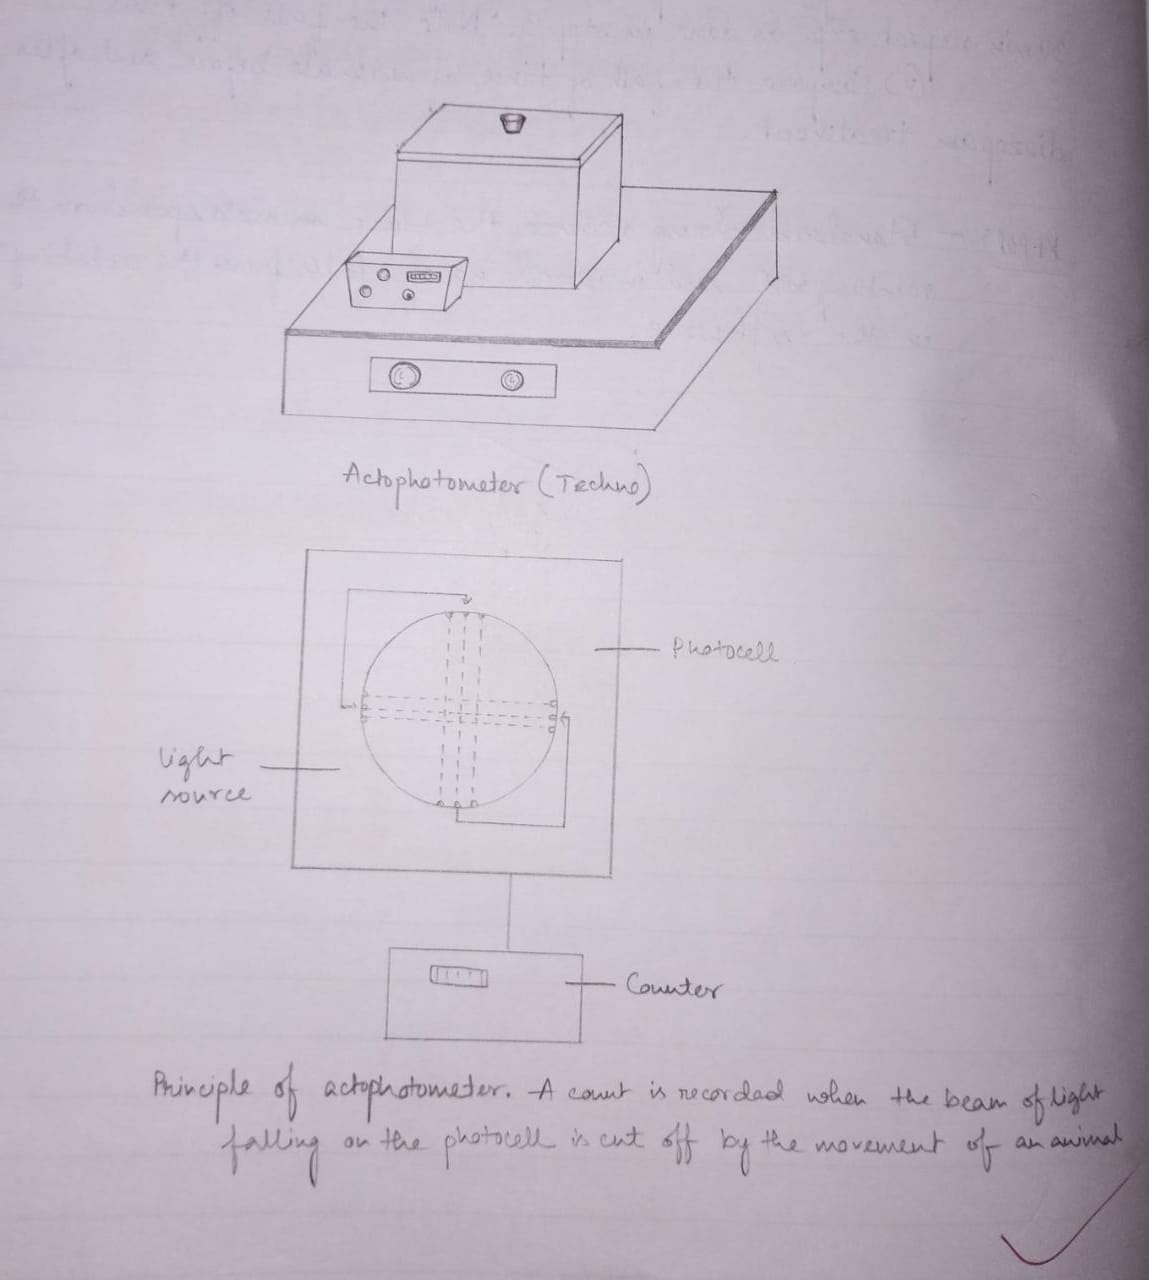 Actophotometer (Techno)
Photocell
light
source
Counter
Principle of actophotometer. A count is recorded when the beam of light
falling on the photocell is cut off by the movement of an animal